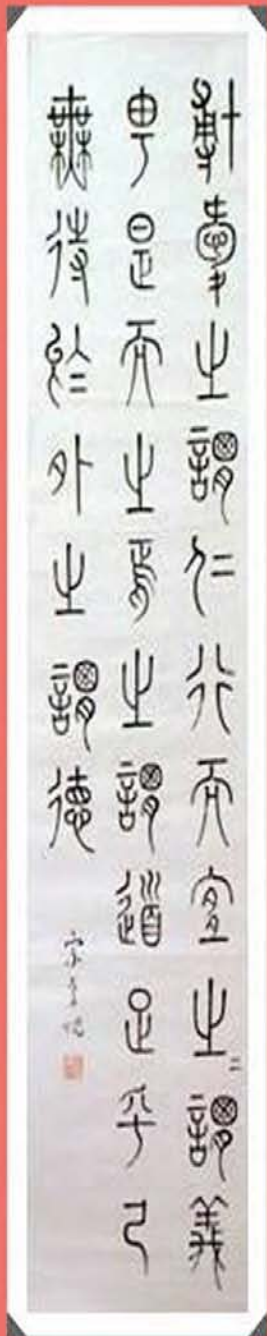 博愛之謂仁行而宜之〻謂義
由是而之焉之謂道足乎己
無待於外之謂德